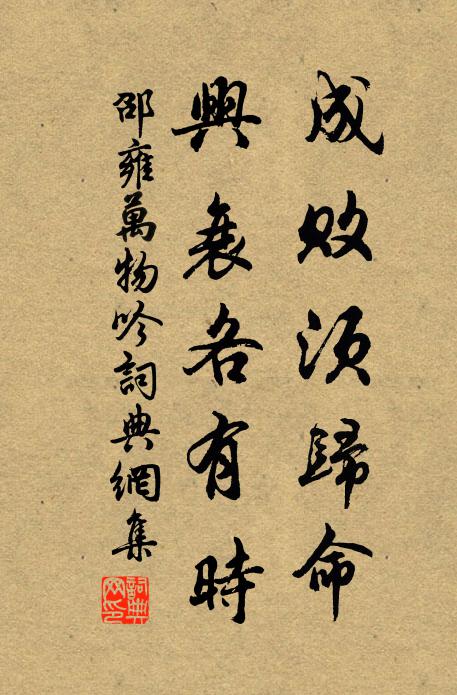 成敗須歸命
興衰各有時
邵雍萬物吟詞典網集
詞典網印